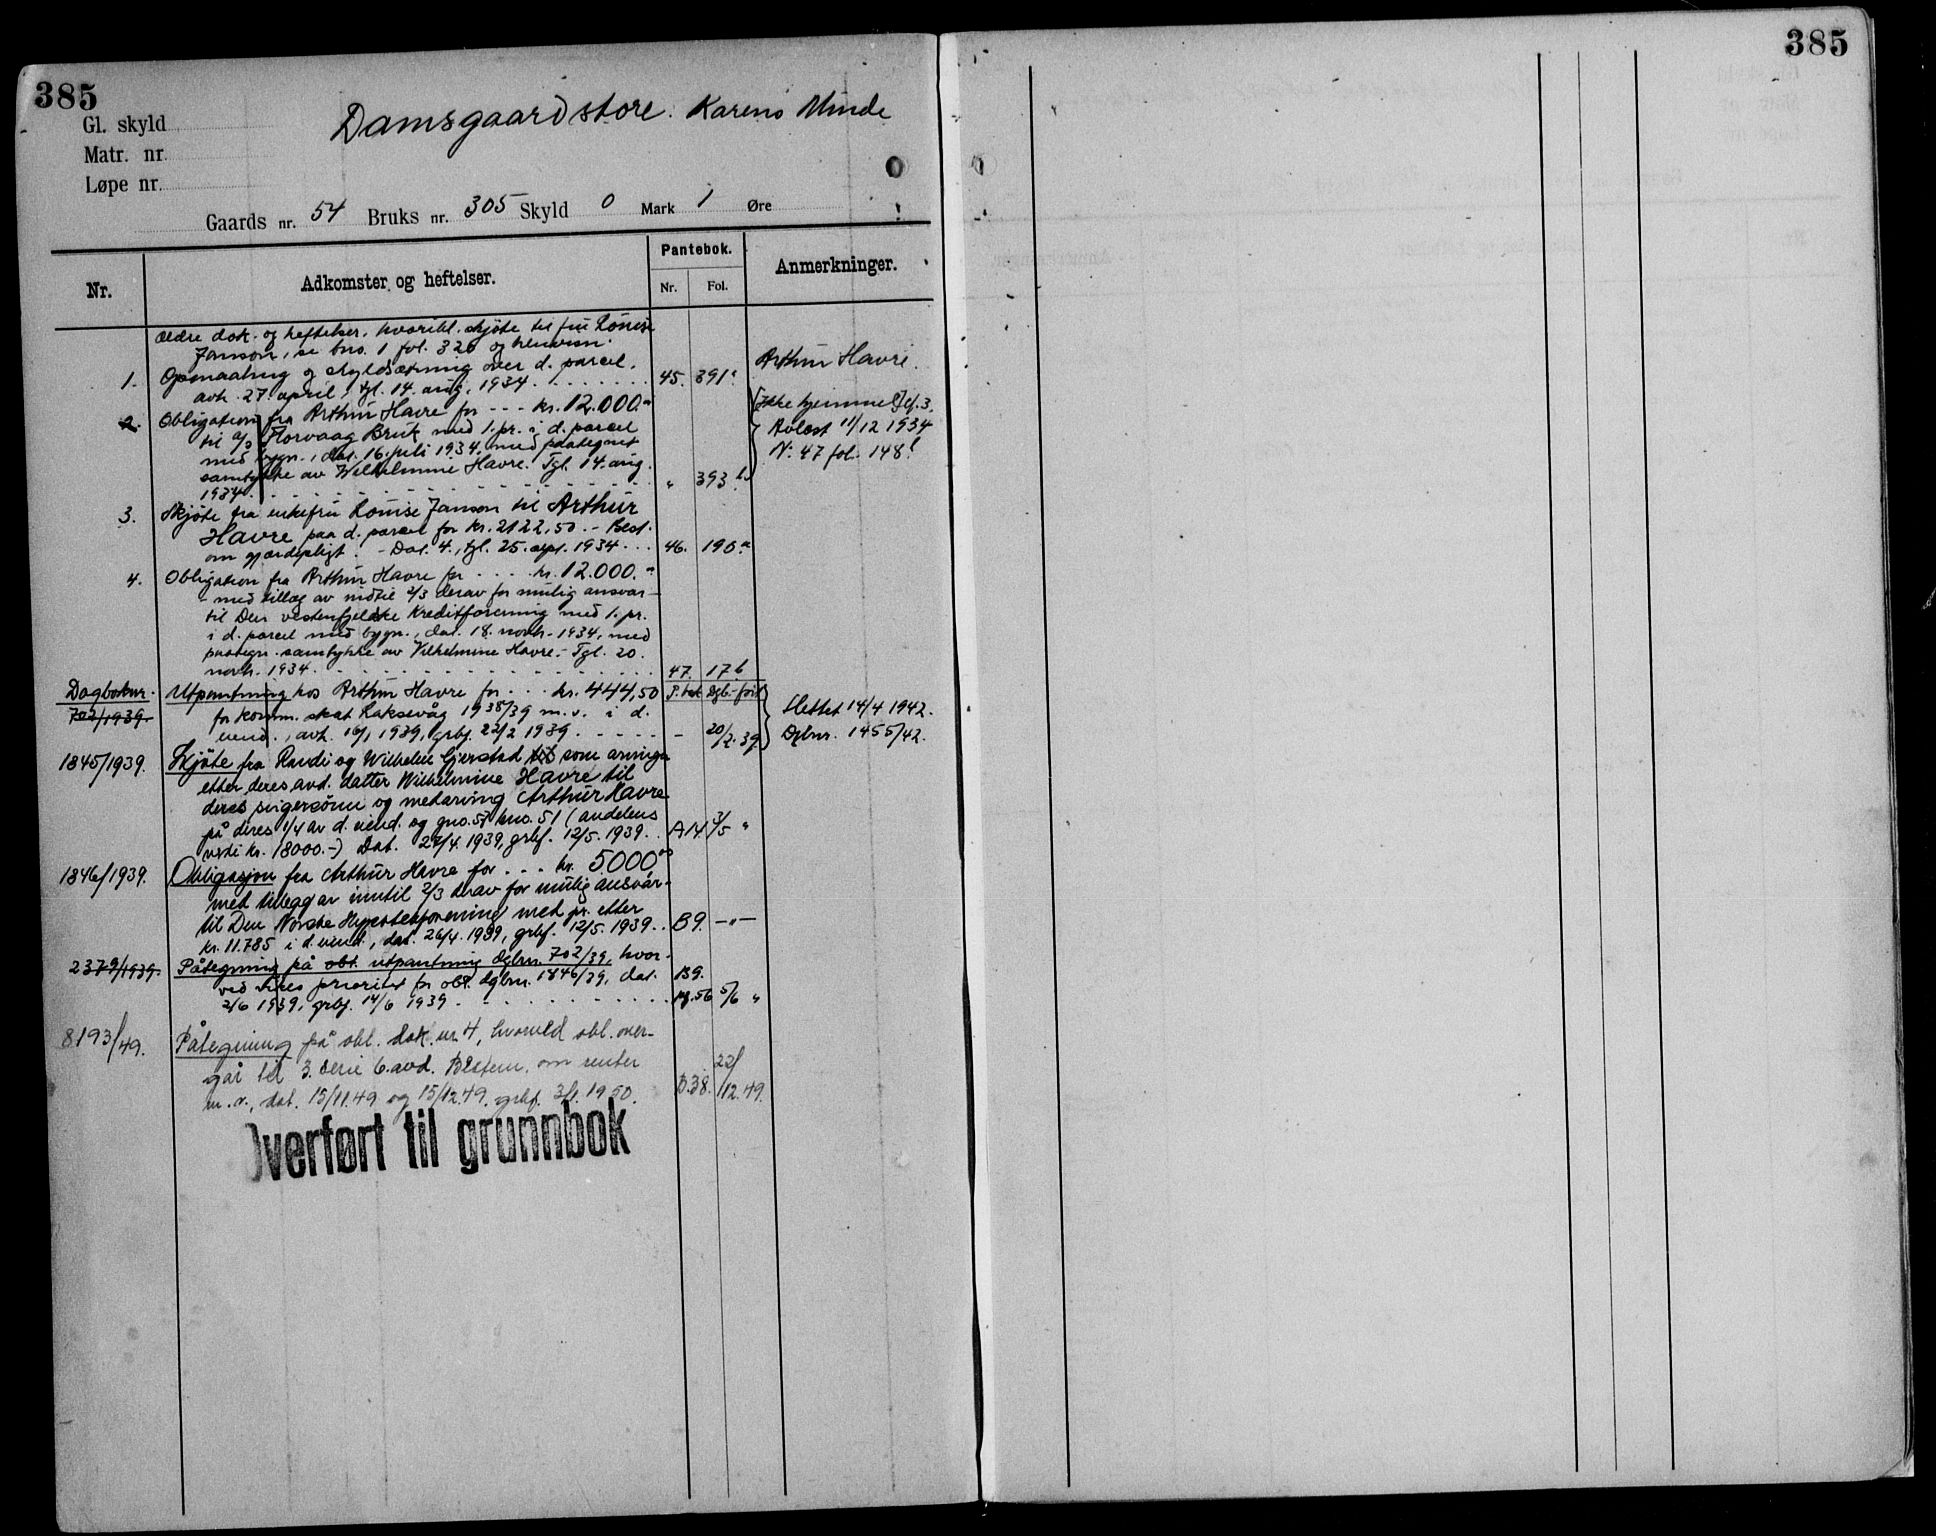 385
385
Damsgaard store. Karens Minde
Gl. skyld
Matr. nr.
Løpe nr.
Gaards nr. 54 Bruks nr. 305 Skyld 0 Mark 1 Øre
Nr.
Adkomster og heftelser.
Pantebok.
Nr. Fol.
Anmerkninger.
Ældre dok. og heftelser, hvoribl. skjøte til fru Louise
Janson, se bno. 1 fol. 326 og henvisn.
Arthur Havre.
1. Opmaaling og skyldsætning over d. parcel,
avh. 27. april, tgl. 14. aug. 1934 . . . . . . . . 45. 391a
2. Obligation fra Arthur Havre for - - - kr. 12.000.-
til a/s Florvaag Bruk med 1. pr. i d. parcel
med bygn., dat. 16. juli 1934, med paategnet
samtykke av Wilhelmine Havre. Tgl. 14. aug.
1934 . . . . . . . . " 393b
[Ikke hjemmel] cf. 3.
Avlest 11/12 1934
N: 47 fol. 148b
3. Skjøte fra enkefru Louise Janson til Arthur
Havre paa d. parcel for kr. 2122,50. - Best.
om gjerdepligt. - Dat. 4., tgl. 25. sept. 1934 . . . 46. 190a
4. Obligation fra Arthur Havre for . . . . kr. 12.000.-
- med tillæg av indtil 2/3 derav for mulig ansvar -
til Den vestenfjeldske Kreditforening med 1. pr.
i d. parcel med bygn., dat. 18. novb. 1934, med
paategn. samtykke av Vilhelmine Havre. - Tgl. 20.
novb. 1934 . . . . . . . . 47. 17b
Dagboknr. P. bok Dgb.-ført
702/1939. Utpantning hos Arthur Havre for . . . kr. 444,50
for komm. skat Laksevåg 1938/39 m.v. i d.
eiend., avh. 16/1 1939, grbf. 22/2 1939 . - - - - - 20/2.39
Slettet 14/4 1942.
Dgbnr. 1455/42.
1845/1939. Skjøte fra Randi og Wilhelm Gjerstad som arvinger
etter deres avd. datter Wilhelmine Havre til
deres svigersønn og medarving Arthur Havre
på deres 1/4 av d. eiend. og gno. 57 bno. 51 (andelens
verdi kr. 18000.-) Dat. 27/4. 1939, grbf. 12/5. 1939 . . A 14 3/5 "
1846/1939. Obligasjon fra Arthur Havre for . . . kr. 5000.00
med tillegg av inntil 2/3 derav for mulig ansvar -
til Den Norske Hypotekforening med pr. etter
kr. 11.785 i d. eiend., dat. 26/4. 1939, grbf. 12/5. 1939 . . B 9. - " -
2379/1939. Påtegning på obl. utpantning dgbnr. 702/39, hvor-
ved vikes prioritet for obl. dgbnr. 1846/39, dat. B9.
2/6 1939, grbf. 14/6 1939 . . . . . . . . pg. 56 5/6 "
8193/49. Påtegning på obl. dok. nr. 4, hvorved obl. over-
går til 3. serie 6. avd. Bestem. om renter
m.v., dat. 15/11.49 og 15/12.49. grbf. 3/1. 1950. B.38. 22/12.49.
Overført til grunnbok